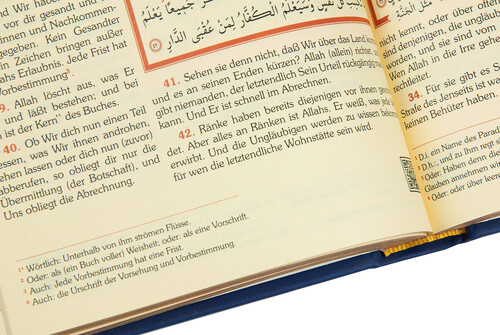 Wir haben
vor dir gesandt und
innen und Nachkommen-
gegeben. Kein Gesandter
Zeichen bringen außer
ahs Erlaubnis. Jede Frist hat
Vorbestimmung³.
9. Allah löscht aus, was Er
und läßt bestehen; und bei
ist der Kern⁴ des Buches.
40. Ob Wir dich nun einen Teil
essen, was Wir ihnen androhen,
ehen lassen oder dich nun (zuvor)
abberufen, so obliegt dir nur die
Übermittlung (der Botschaft), und
Uns obliegt die Abrechnung.
جَمِيعًا يَعْلَمُ
نَفْسٍ وَسَيَعْلَمُ الْكُفَّارُ لِمَنْ عُقْبَى الدَّارِ
41. Sehen sie denn nicht, daß Wir über das Land
und es an seinen Enden kürzen? Allah (allein) richtet, und
gibt niemanden, der letztlich Sein Urteil rückgängig
kann. Und Er ist schnell im Abrechnen.
42. Ränke haben bereits diejenigen vor ihnen
det. Aber alles an Ränken ist Allahs. Er weiß, was jede
erwirbt. Und die Ungläubigen werden zu wissen bekommen,
für wen die letztendliche Wohnstätte sein wird.
1* Wörtlich: Unterhalb von ihm strömen Flüsse.
2 Oder: als (ein Buch voller) Weisheit; oder: als eine Vorschrift.
3 Auch: Jede Vorbestimmung hat eine Frist.
4 Auch: die Urschrift der Vorsehung und Vorbestimmung.
nicht
nennt, oder über offen
kennt, oder
worden; und sie sind vom
Wen Allah in die Irre gehen
rechtleitet.
34. Für sie gibt es
Strafe des Jenseits ist
keinen Behüter haben.
1 D.i. ein Name des
2 D.h.: und zu Ihm
3 Oder: Haben denn
Glauben annehmen
4 Oder: oder über